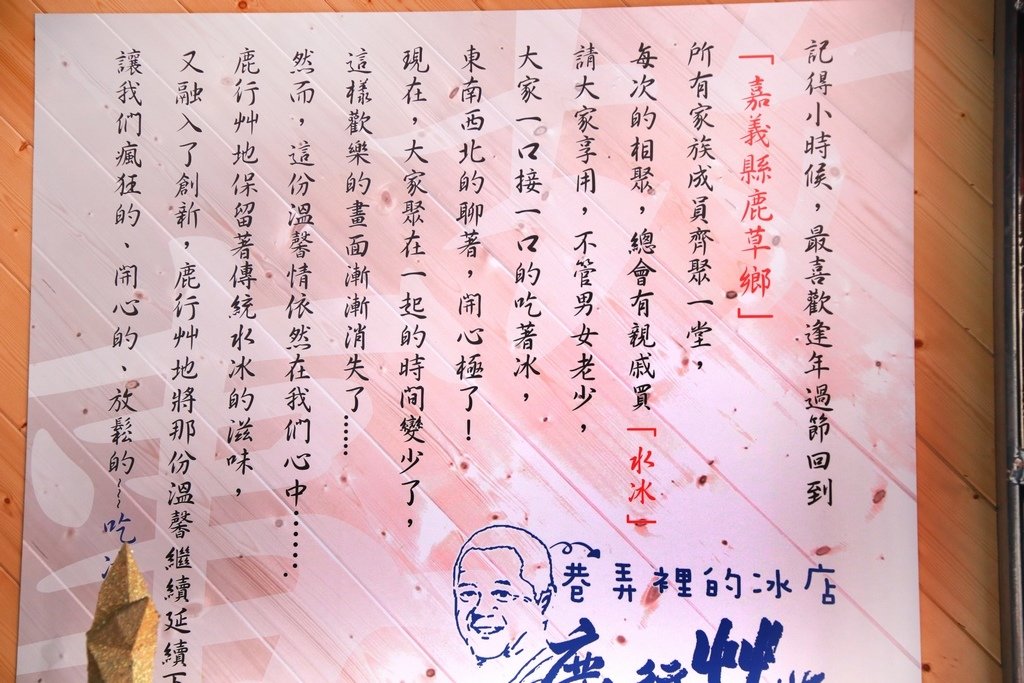 記得小時候，最喜歡逢年過節回到
「嘉義縣鹿草鄉」
所有家族成員齊聚一堂，
每次的相聚，總會有親戚買「水冰」
請大家享用，不管男女老少，
大家一口接一口的吃著冰，
東南西北的聊著，開心極了！
現在，大家聚在一起的時間變少了，
這樣歡樂的畫面漸漸消失了……
然而，這份溫馨情依然在我們心中……
鹿行艸地保留著傳統水冰的滋味，
又融入了創新，鹿行艸地將那份溫馨繼續延續下
讓我們瘋狂的、開心的、放鬆的~~吃
巷弄裡的冰店
鹿行艸地